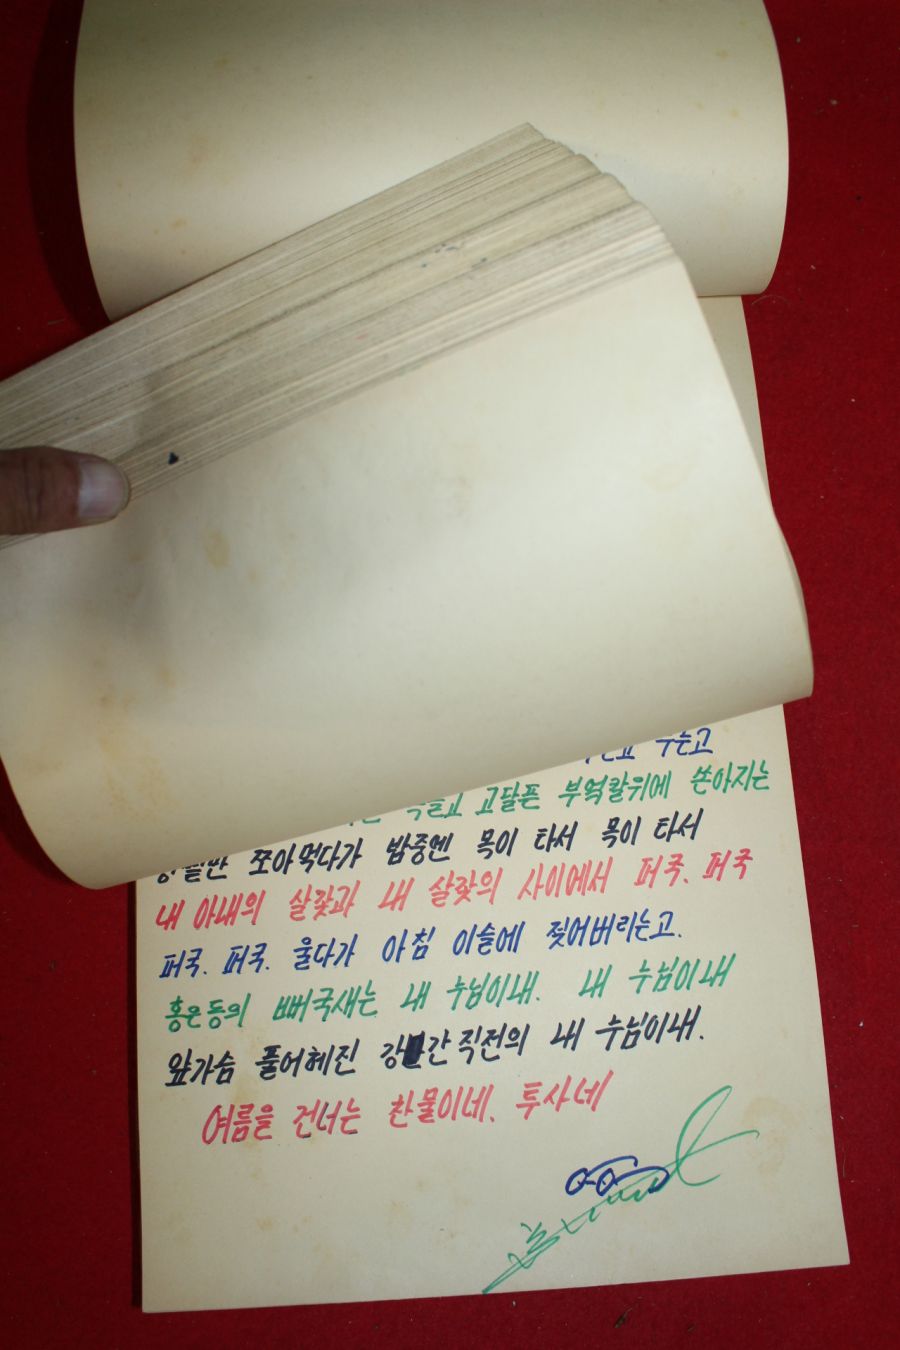 누는고
고달픈 부엌칼위에 쏟아지는
쪼아먹다가 밤중엔 목이 타서 목이 타서
내 아내의 살갗과 내 살갗의 사이에서 퍼국. 퍼국
퍼국. 퍼국. 울다가 아침 이슬에 젖어버리는고.
홍은동의 뻐국새는 내 누님이내. 내 누님이내
앞가슴 풀어헤진 강간직전의 내 누님이내.
여름을 건너는 찬물이네. 투사네